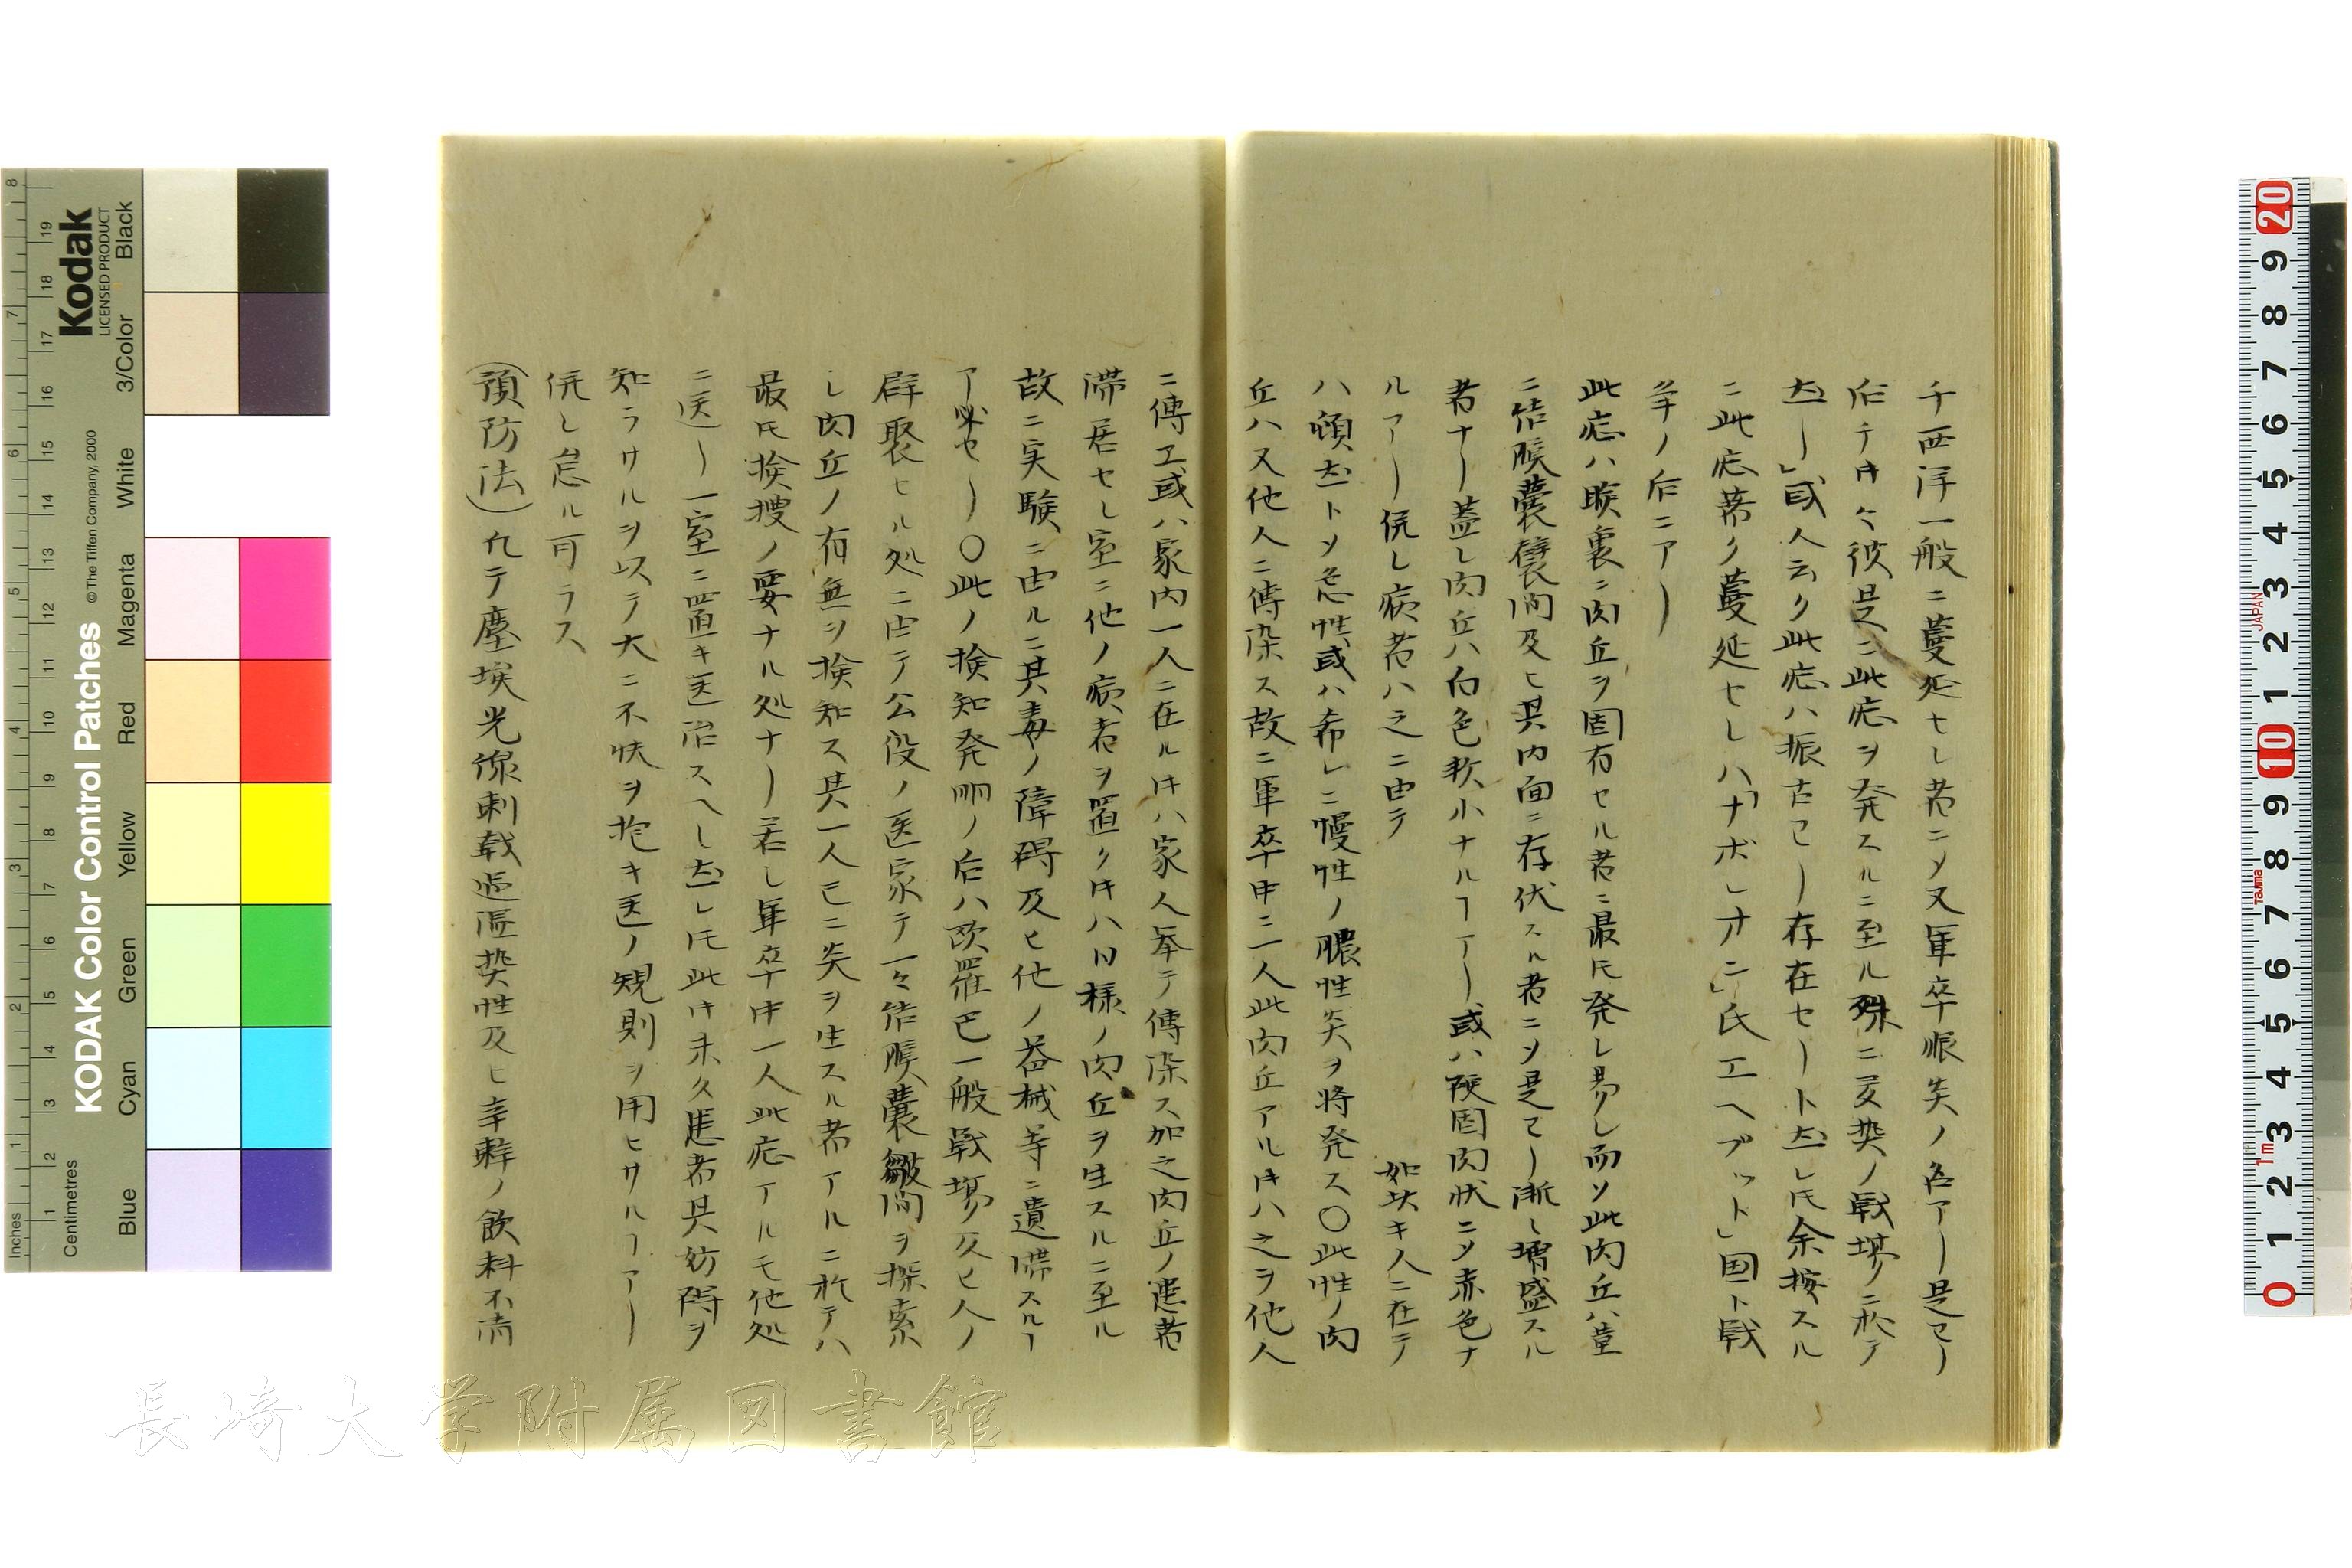 千西洋一般ニ蔓延セシ者ニメ又軍卒眼炎ノ名アリ是ヨリ
后チ𪜈々彼是ニ此症ヲ発スルニ至ル殊ニ交樊ノ戦場ニ於テ
𬼀リ」或人云ク此症ハ振古ヨリ存在セリト𬼀レ𪜈余按スル
ニ此症夥ク蔓延セシハ「ナポレオン」氏エヘプット」国ト戦
争ノ后ニアリ
此症ハ瞼裏ニ肉丘ヲ固有セル者ニ最𪜈発シ易シ而ソ此肉丘ハ童
ニ結膜嚢襞間及ヒ其内面ニ存伏スル者ニソ是ヨリ漸シ増盛スル
者ナリ蓋シ肉丘ハ白色軟小ナルヿアリ或ハ硬固肉状ニソ赤色ナ
ルアリ併シ病者ハ之ニ由テ 如此キ人ニ在テ
ハ頓𬼀トソ急性或ハ希レニ慢性ノ膿性炎ヲ将発ス〇此性ノ肉
丘ハ又他人ニ傳染ス故ニ軍卒中ニ一人此肉丘アル𪜈ハ之ヲ他人
ニ傳エ或ハ家内一人ニ在ル𪜈ハ家人挙テ傳染ス加之肉丘ノ患者
滞居セシ室ニ他ノ病者ヲ置ク𪜈ハ同様ノ肉丘ヲ生スルニ至ル
故ニ実験ニ由ルニ其毒ノ障碍及ヒ他ノ器械等ニ遺滞スルヿ
ア必セリ〇此ノ検知発明ノ后ハ欧羅巴一般戦場及ヒ人ノ
群聚セル処ニ由テ公役ノ医家テ一々結膜嚢皺間ヲ探索
シ肉丘ノ有無ヲ検知ス其一人已ニ炎ヲ生スル者アルニ於テハ
最𪜈検捜ノ要ナル処ナリ若シ軍卒中一人此症アルモ他処
ニ送リ一室ニ置キ医治スヘシ𬼀レ𪜈此𪜈未久患者其妨碍ヲ
知ラサルヲ以テ大ニ不快ヲ抱キ医ノ規則ヲ用ヒサルヿアリ
併シ怠ル可ラス
(預防法)凡テ塵埃光線刺戟過温樊性及ヒ辛辣ノ飲料不清
長崎大学附属図書館
Kodak
LICENSED PRODUCT
KODAK Color Control Patches
© The Tiffen Company, 2000
Blue Cyan Green Yellow Red Magenta White 3/Color Black
Inches
Centimetres